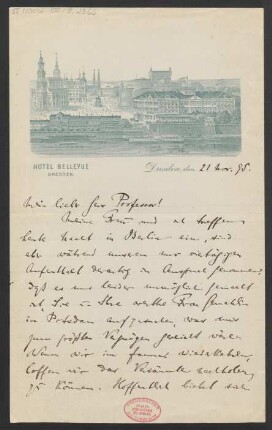 HOTEL BELLEVUE
DRESDEN
Dresden, den 21 Nov. 95.
Mein lieber Herr Professor!
Meine Frau und ich treffen
heute Nacht in Berlin ein, sind
aber während unseres nur
Aufenthalt derartig in Anspruch genommen,
daß es uns leider unmöglich gemacht
ist Sie u. Ihre werthe Frau Gemahlin
in Potsdam aufzusuchen, was uns
zum größten Vergnügen gereicht wäre.
Wenn wir im wiederkehren,
hoffen wir das Versäumte nachholen
zu können. Hoffentlich bietet sich